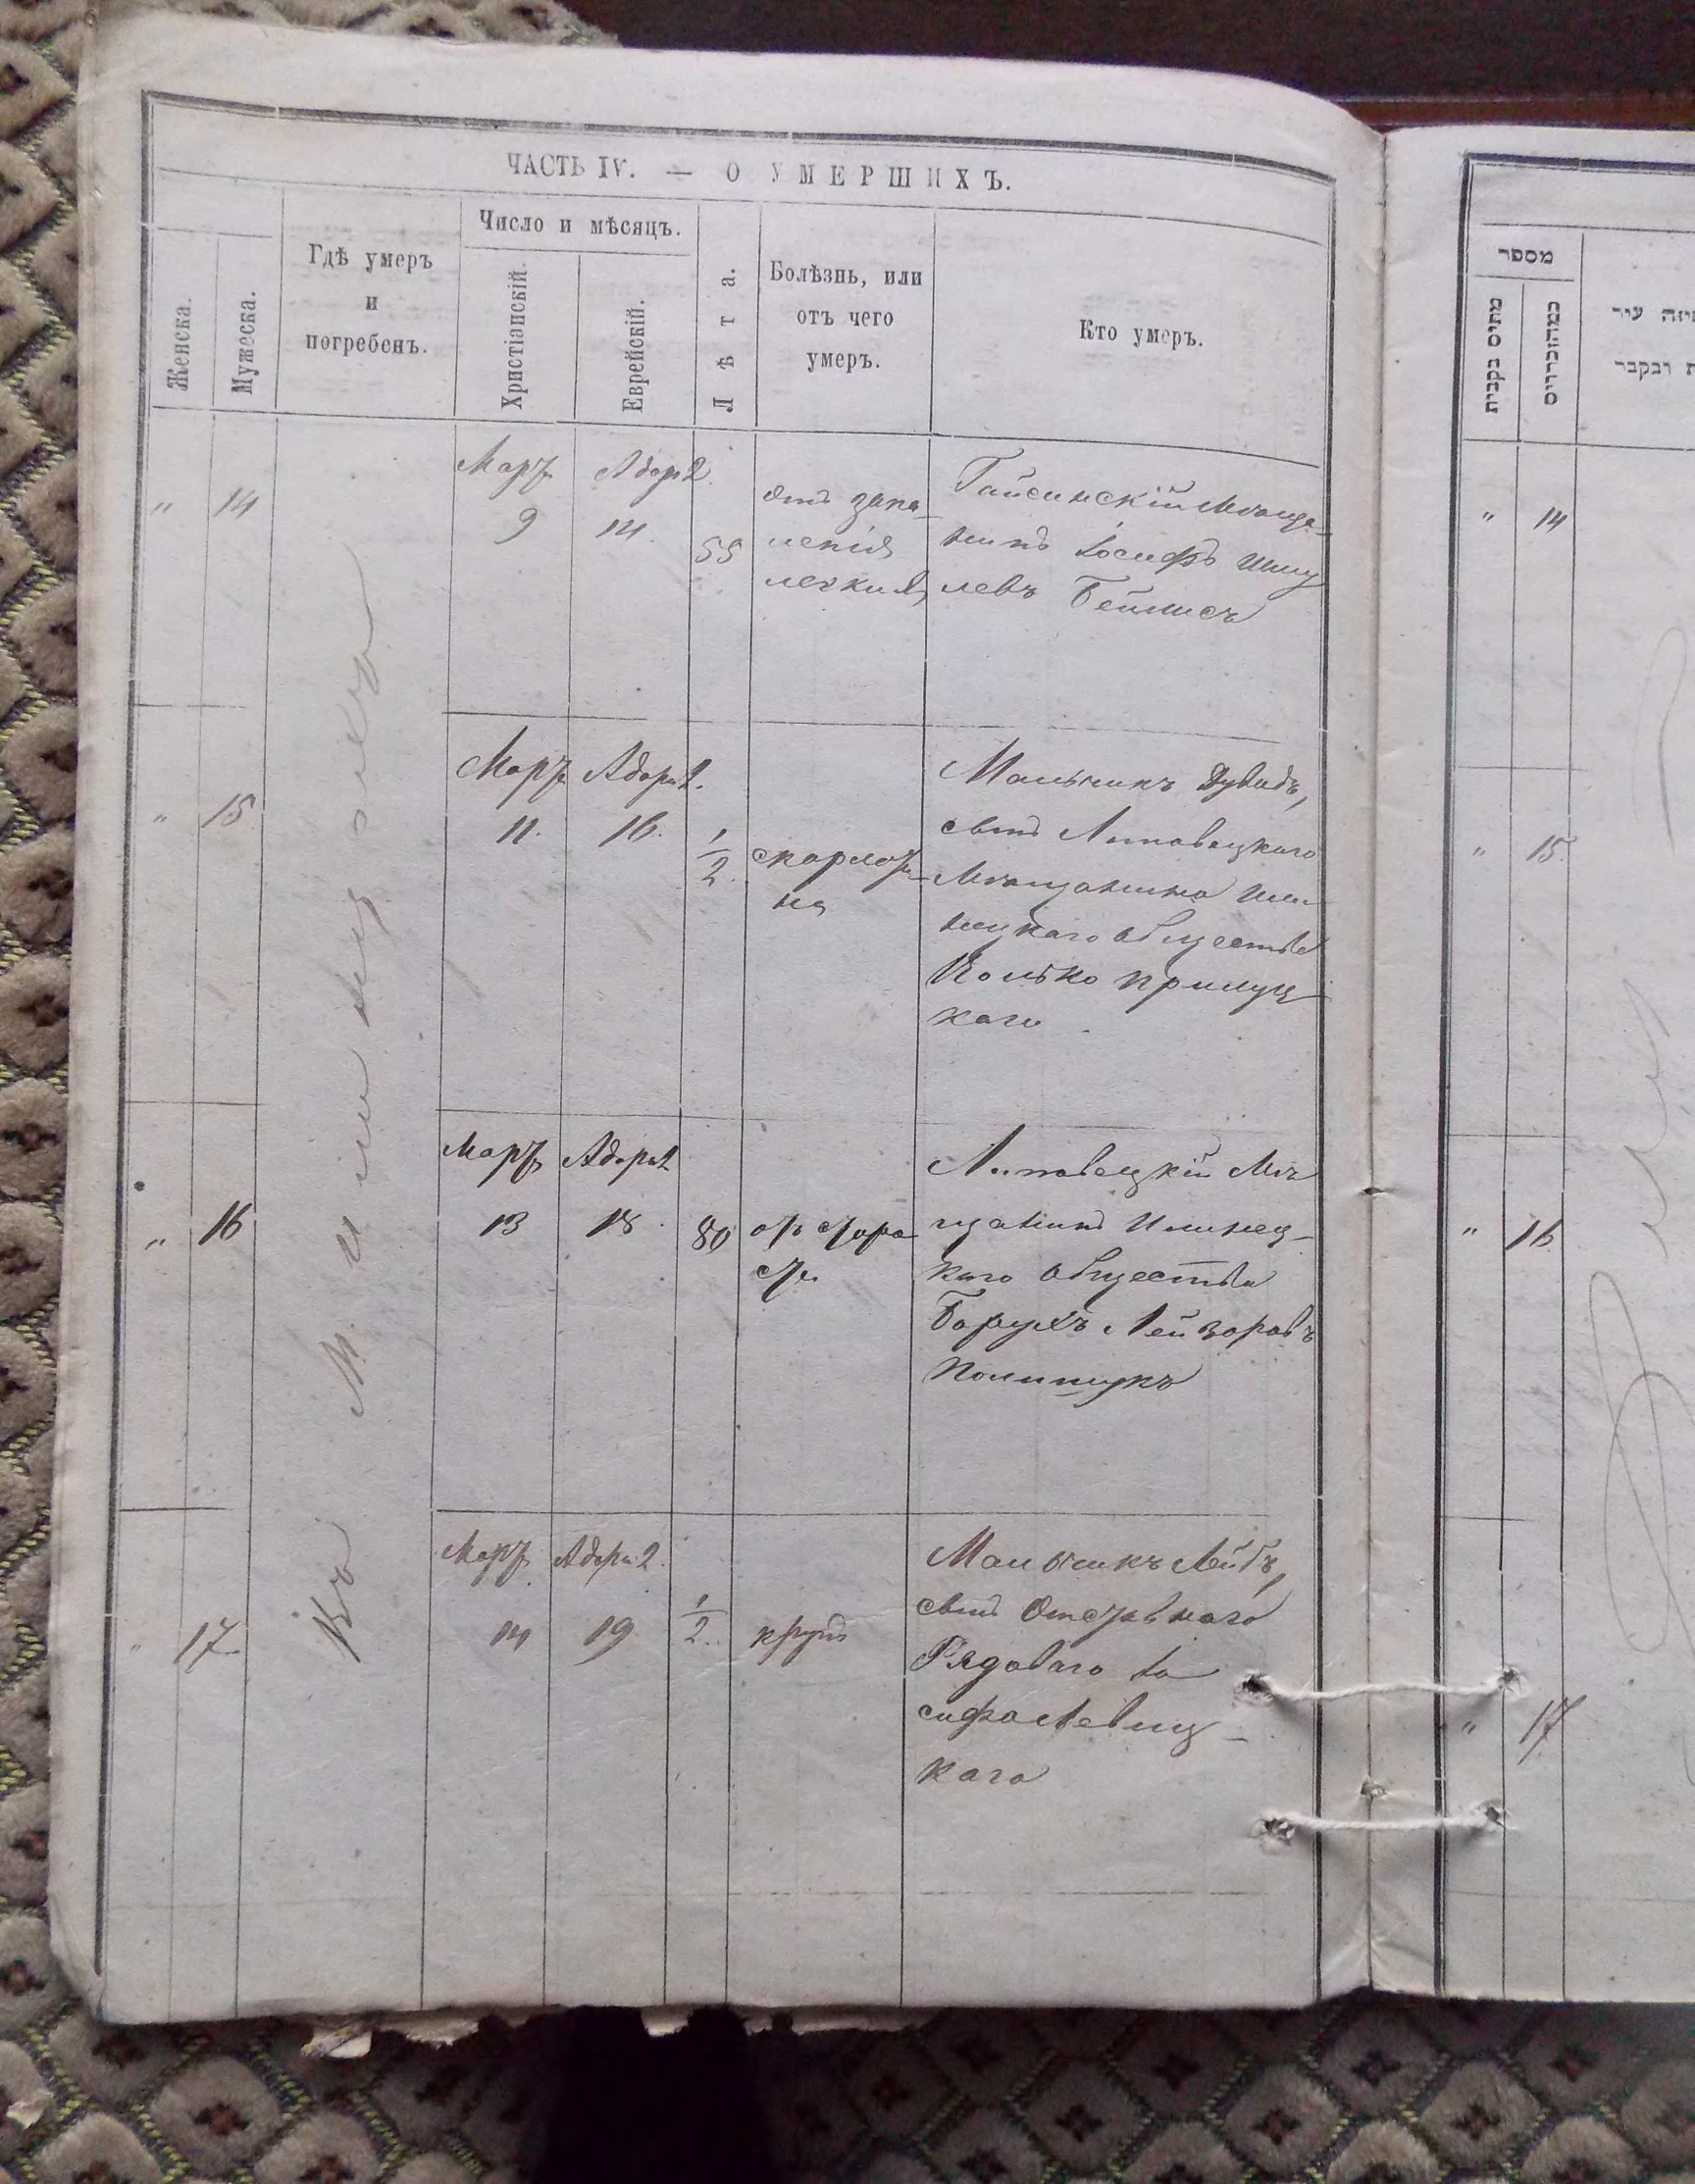 ЧАСТЬ IV. — О УМЕРШИХЪ.
Женска.
Мужеска.
Гдѣ умеръ
и
погребенъ.
Число и мѣсяцъ.
Христіанскій.
Еврейскій.
Лѣта.
Болѣзнь, или
отъ чего
умеръ.
Кто умеръ.
Въ М. Илинцахъ
" 14
Март Адоръ 2.
9 14.
55
отъ запа-
ленія
легкихъ
Гайсинскій Мѣща-
нинъ Іосифъ Шму
левъ Бейлисъ
" 15
Март Адаръ 2.
11. 16.
1/2
скарлати-
на
Мальчикъ Дувидъ,
сынъ Липовецкаго
Мѣщанина Или-
нецкаго общества
Волько Прилуц-
каго
" 16
Март Адаръ 2
13 18.
80
отъ старо
сти
Липовецкій Мѣ
щанинъ Илинец-
каго общества
Борухъ Лейзоровъ
Полищукъ
" 17.
Март Адаръ 2.
14 19.
1/2.
крупъ
Мальчикъ Лейбъ,
сынъ Отставнаго
Рядоваго Іо
сифа Левиц-
каго
מספר
מתים נקבות
" 14
" 15.
" 16.
" 17